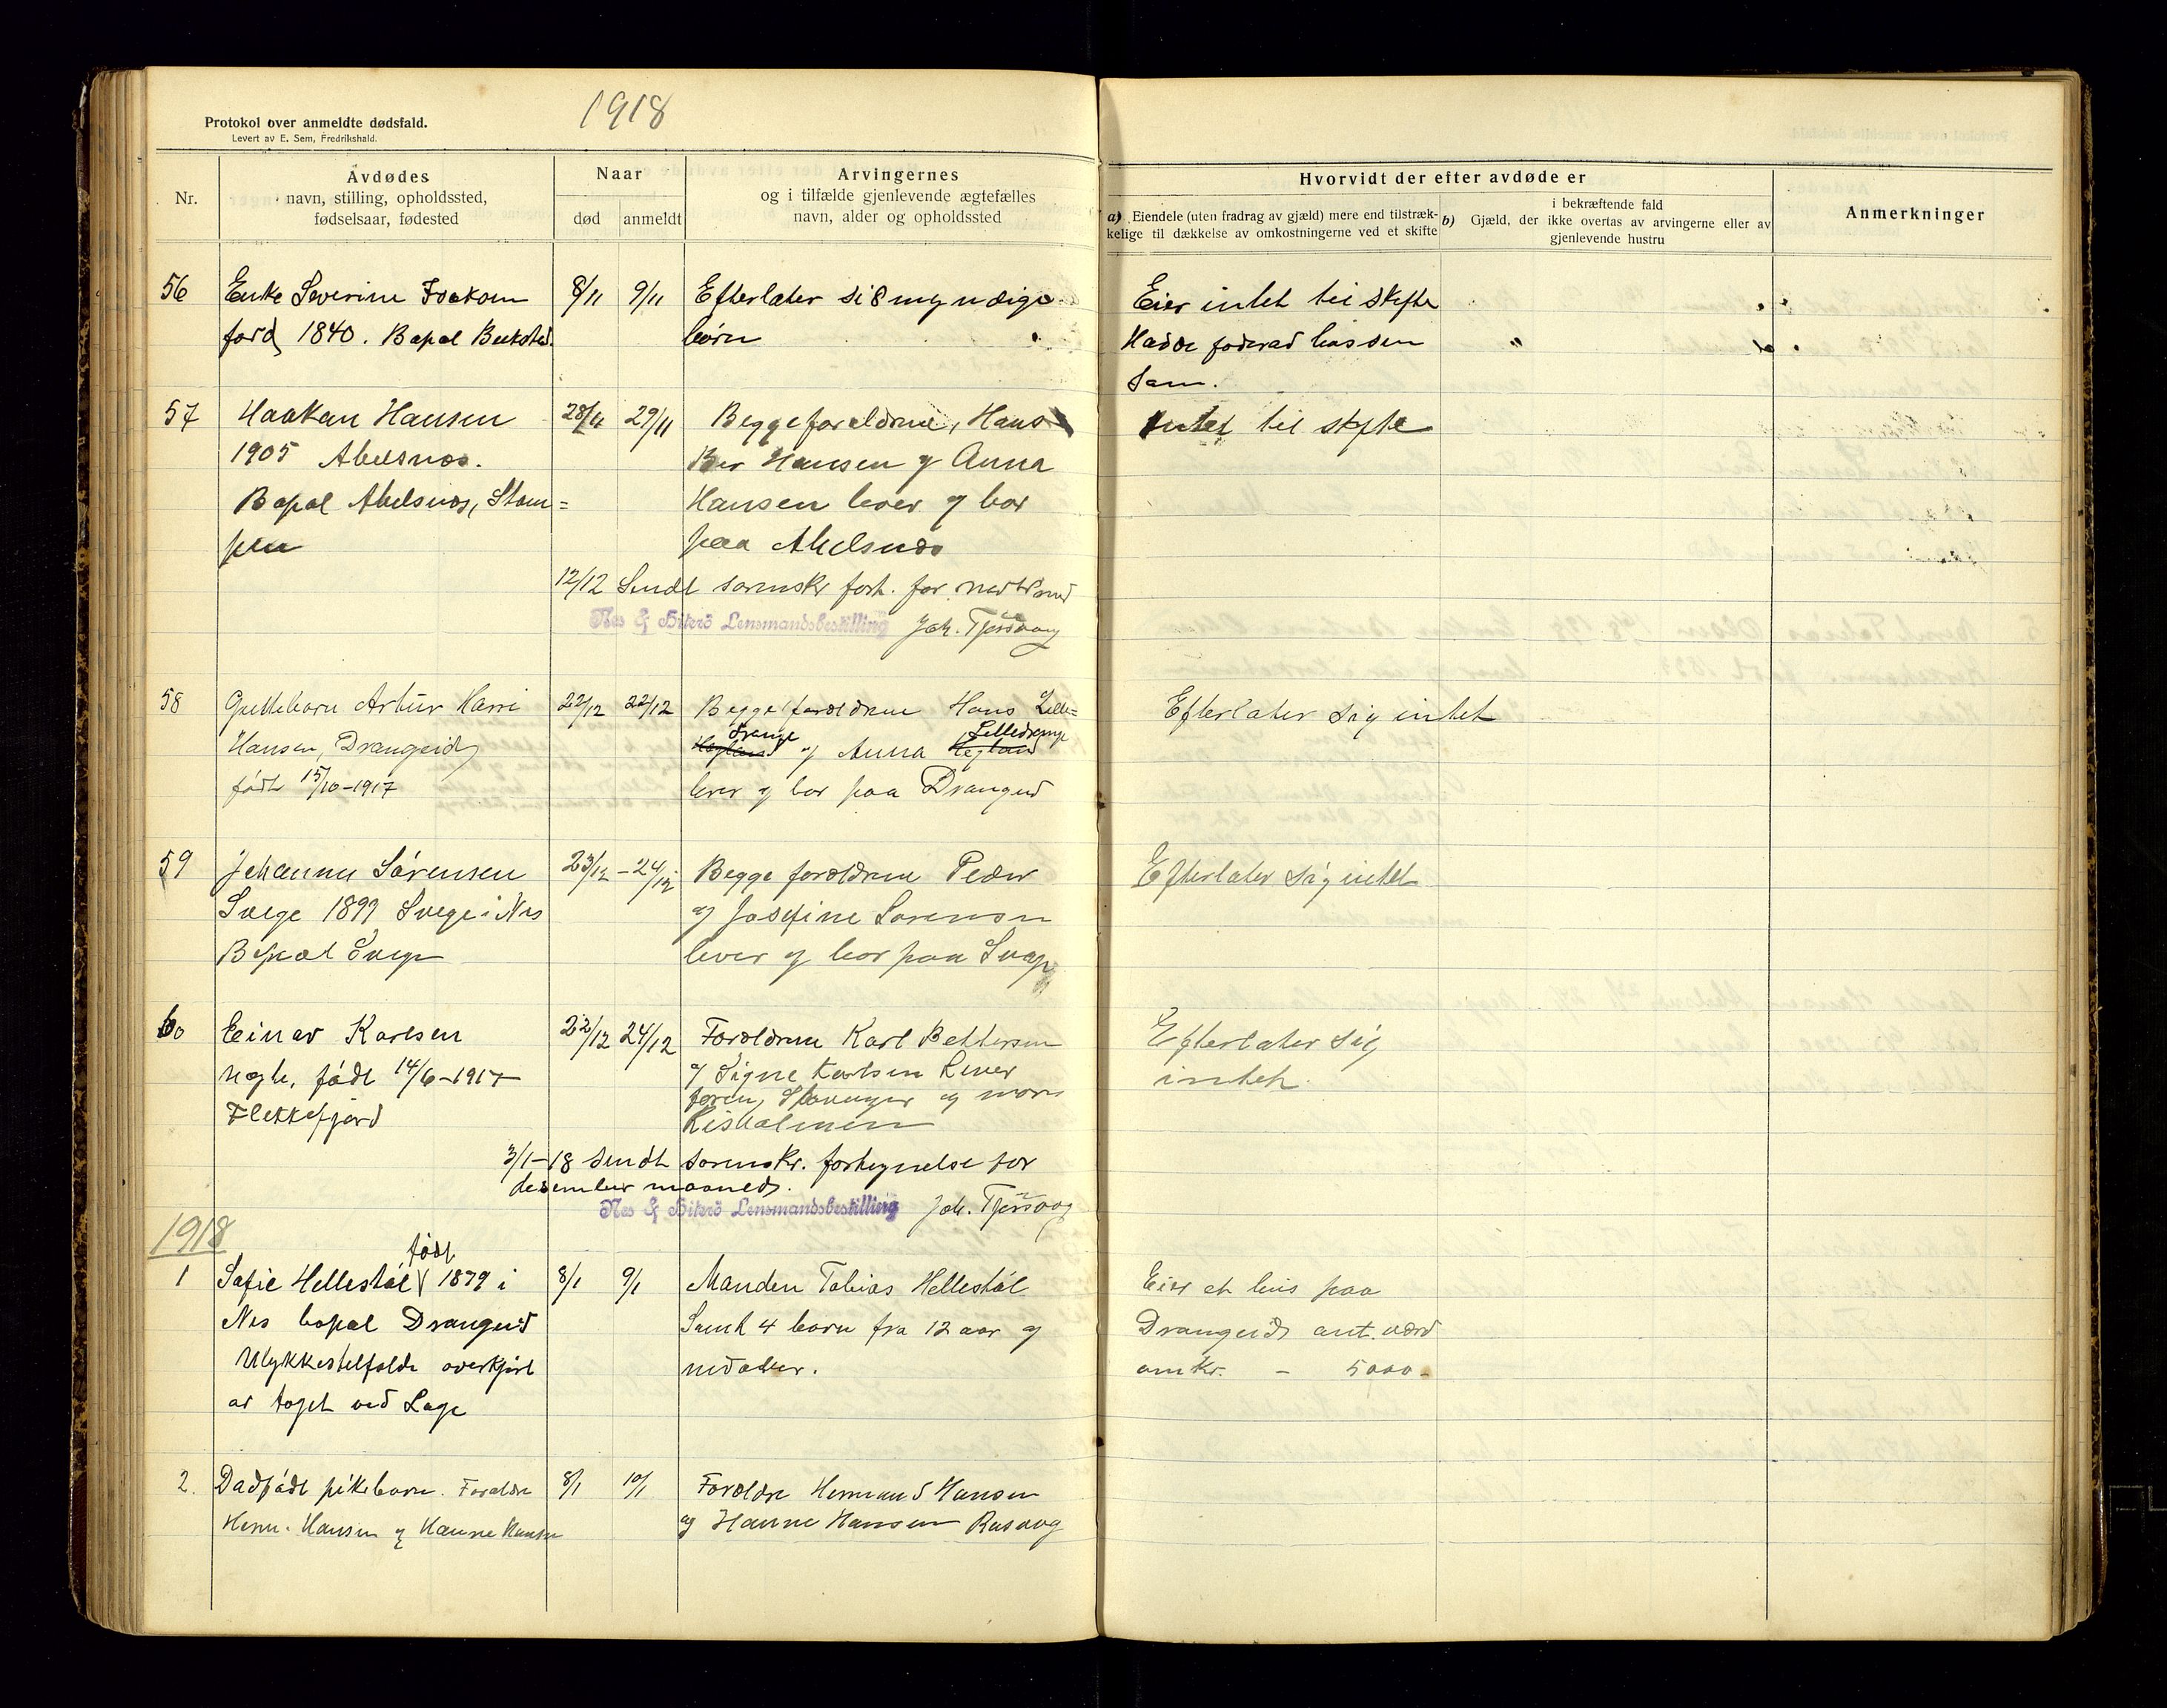 1918
Protokol over anmeldte dødsfald.
Levert av E. Sem, Fredrikshald.
Nr.
Avdødes
navn, stilling, opholdssted,
fødselsaar, fødested
Naar
død
anmeldt
Arvingernes
og i tilfælde gjenlevende ægtefælles
navn, alder og opholdssted
Hvorvidt der efter avdøde er
a) Eiendele (uten fradrag av gjæld) mere end tilstræk-
kelige til dækkelse av omkostningerne ved et skifte
i bekræftende fald
b) Gjæld, der ikke overtas av arvingerne eller av
gjenlevende hustru
Anmerkninger
56 Enke Severine 8/11 9/11 Efterlater si 8 myndige Eier intet til skifte
1840. Bopal børn Hadde foderaad hos sen
søn.
57 Haakan Hansen 28/11 29/11 Begge foreldrene, Hans Intet til skifte
1905 Abelsnæs. Hansen og Anna
Bopal Abelsnæs, Stam= Hansen lever og bor
pen paa Abelsnæs
12/12 Sendt sorenskr forh. for
Nes & Hiterö Lensmandsbestilling Joh. Tjersvaag
58 Guttebarn Artur Harri 22/12 22/12 Begge foreldrene Hans Lille= Efterlater sig intet
Drange Lilledrange
Hansen, Drangeid Hegland og Anna Hegland
født 15/10-1917 lever og bor paa Drangeid
59 Johannes Sørensen 23/12 - 24/12 Begge foreldrene Peder Efterlater sig intet
Svege 1899 Svege i Nes og Josefine Sørensen
Bopæl Svege lever og bor paa Svege
60 Einar Karlsen 22/12 24/12 Foreldrene Karl Bettersen Efterlater sig
født 14/6-1917 og Signe Karlsen Lever intet.
Flekkefjord faren, Stavanger og moren
3/1-18 sendt sorenskr. fortegnelse for
desember maaned.
Nes & Hiterö Lensmandsbestilling Joh. Tjersvaag
1918
født
1 Sofie Hellestøl 1879 i 8/1 9/1 Manden Tobias Hellestøl Eier et hus paa
Nes bopæl Drangeid Samt 4 børn fra 12 aar og Drangeid ant. værd
Ulykkestelfælde overkjørt nedover. omkr. - 5000-
av toget ved Loge
2. Dødfødt pikebarn. Foreldre 8/1 10/1 Foreldre Herman S Hansen
Herm. Hansen og Hanne Hansen og Hanne Hansen Rasvaag